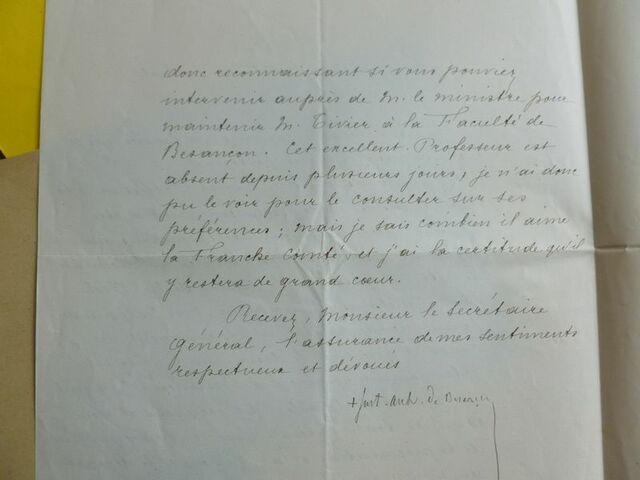 donc reconnaissant si vous pouviez
intervenir auprès de M. le ministre pour
maintenir M. Tivier à la Faculté de
Besançon. Cet excellent Professeur est
absent depuis plusieurs jours, je n'ai donc
pu le voir pour le consulter sur ses
préférences; mais je sais combien il aime
la Franche Comté, et j'ai la certitude qu'il
y restera de grand cœur.
Recevez, Monsieur le Secrétaire
général, l'assurance de mes sentiments
respectueux et dévoués
+ just. arch. de Besançon